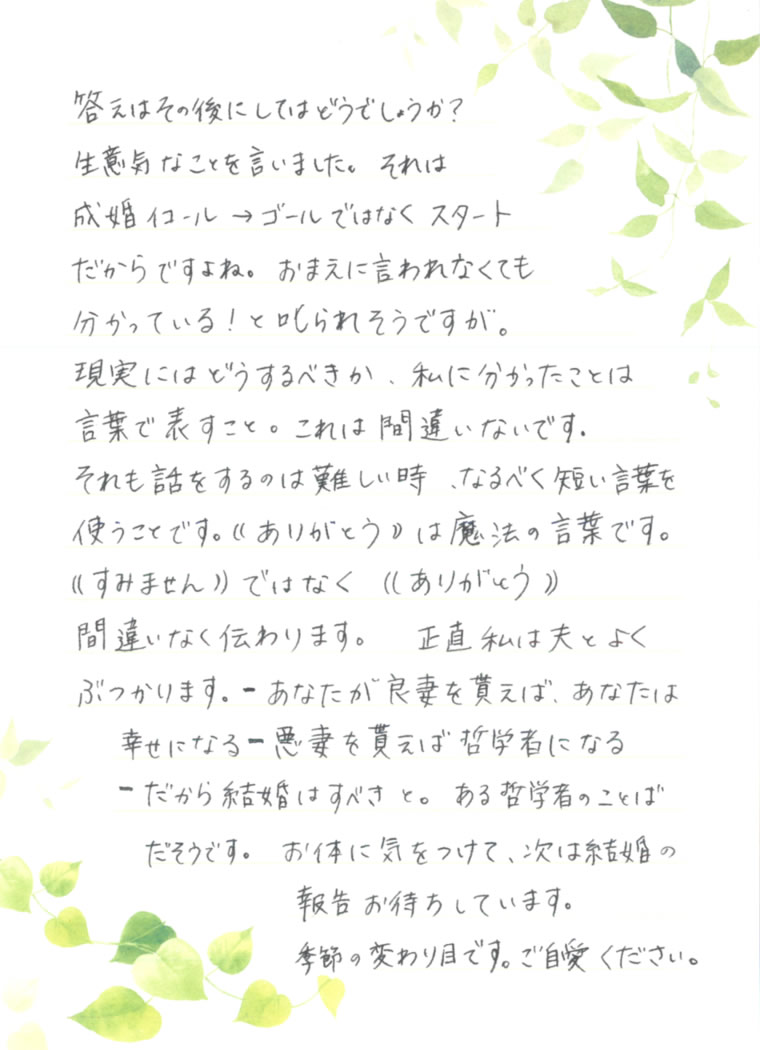 答えはその後にしてはどうでしょうか?
生意気なことを言いました。それは
成婚イコール→ゴールではなくスタート
だからですよね。おまえに言われなくても
分かっている!と叱られそうですが。
現実にはどうするべきか、私に分かったことは
言葉で表すこと。これは間違いないです.
それも話をするのは難しい時、なるべく短い言葉を
使うことです。《ありがとう》は魔法の言葉です。
《すみません》ではなく《ありがとう》
間違いなく伝わります。 正直私は夫とよく
ぶつかります。ーあなたが良妻を貰えば、あなたは
幸せになるー悪妻を貰えば哲学者になる
ーだから結婚はすべきと。ある哲学者のことば
だそうです。お体に気をつけて、次は結婚の
報告お待ちしています。
季節の変わり目です。ご自愛ください。